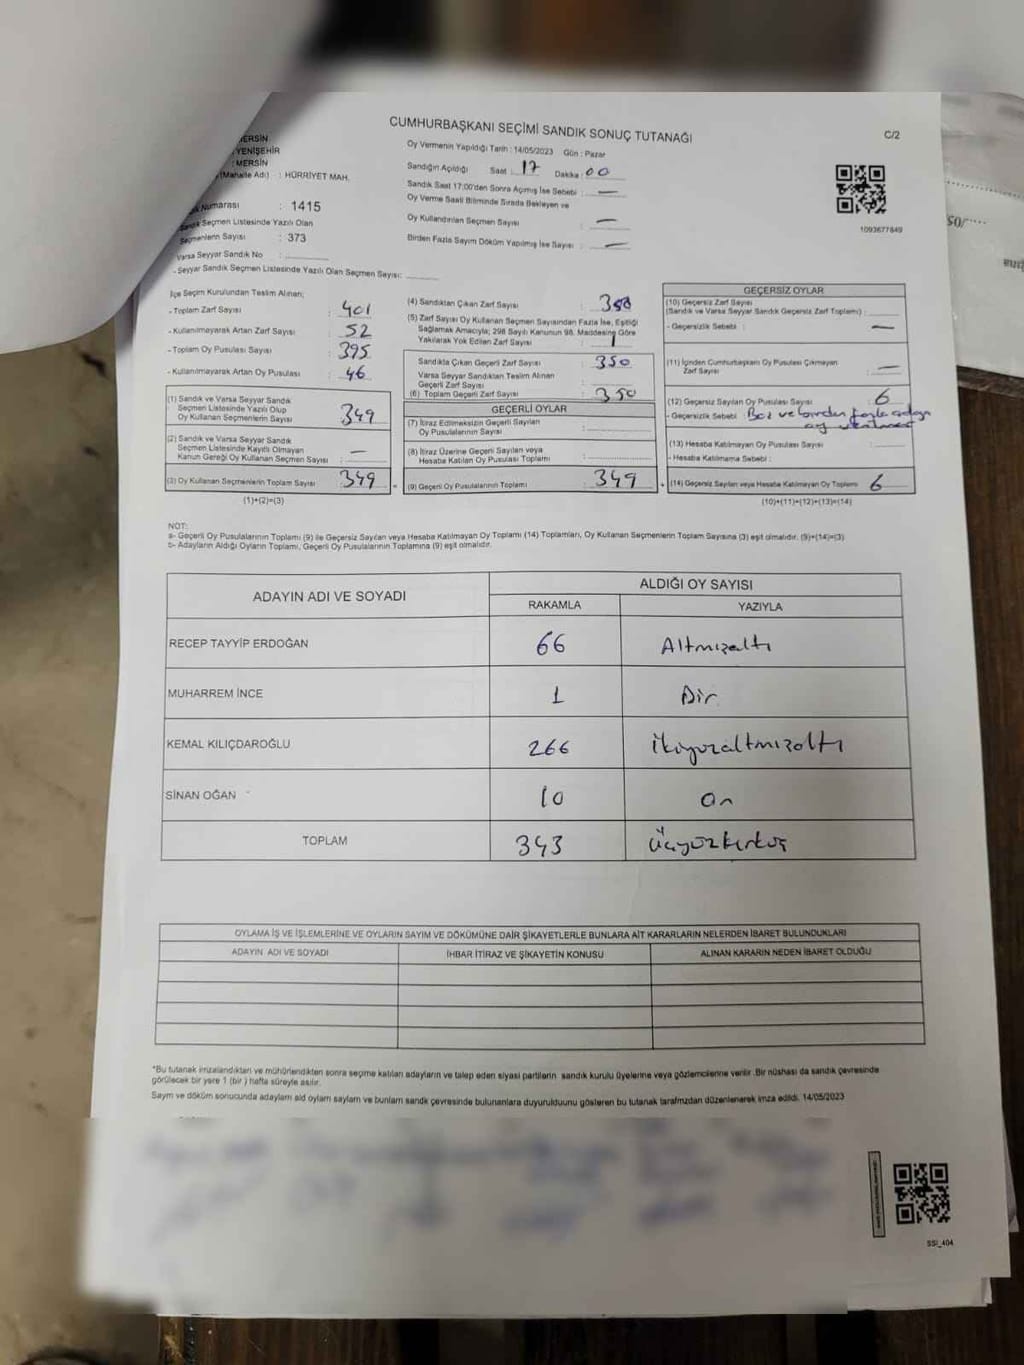 CUMHURBAŞKANI SEÇİMİ SANDIK SONUÇ TUTANAĞI
C/2
MERSİN
YENİŞEHİR
: MERSİN
(Mahalle Adı) : HÜRRİYET MAH.
Numarası : 1415
Seçmen Listesinde Yazılı Olan
Seçmenlerin Sayısı : 373
Varsa Seyyar Sandık No :
- Seyyar Sandık Seçmen Listesinde Yazılı Olan Seçmen Sayısı:
Oy Vermenin Yapıldığı Tarih : 14/05/2023 Gün : Pazar
Sandığın Açıldığı Saat : 17 Dakika : 00
Sandık Saat 17:00'den Sonra Açılmış İse Sebebi : —
Oy Verme Saati Bitiminde Sırada Bekleyen ve
Oy Kullandırılan Seçmen Sayısı : —
Birden Fazla Sayım Döküm Yapılmış İse Sayısı : —
1093677849
İlçe Seçim Kurulundan Teslim Alınan;
- Toplam Zarf Sayısı : 401
- Kullanılmayarak Artan Zarf Sayısı : 52
- Toplam Oy Pusulası Sayısı : 395
- Kullanılmayarak Artan Oy Pusulası : 46
(1) Sandık ve Varsa Seyyar Sandık
Seçmen Listesinde Yazılı Olup
Oy Kullanan Seçmenlerin Sayısı : 349
(2) Sandık ve Varsa Seyyar Sandık
Seçmen Listesinde Kayıtlı Olmayan
Kanun Gereği Oy Kullanan Seçmen Sayısı : —
(3) Oy Kullanan Seçmenlerin Toplam Sayısı : 349
(1)+(2)=(3)
(4) Sandıktan Çıkan Zarf Sayısı : 350
(5) Zarf Sayısı Oy Kullanan Seçmen Sayısından Fazla İse, Eşitliği
Sağlamak Amacıyla; 298 Sayılı Kanunun 98. Maddesine Göre
Yakılarak Yok Edilen Zarf Sayısı : 1
Sandıkta Çıkan Geçerli Zarf Sayısı : 350
Varsa Seyyar Sandıktan Teslim Alınan
Geçerli Zarf Sayısı :
(6) Toplam Geçerli Zarf Sayısı : 350
GEÇERLİ OYLAR
(7) İtiraz Edilmeksizin Geçerli Sayılan
Oy Pusulalarının Sayısı :
(8) İtiraz Üzerine Geçerli Sayılan veya
Hesaba Katılan Oy Pusulası Toplamı :
(9) Geçerli Oy Pusulalarının Toplamı : 349
GEÇERSİZ OYLAR
(10) Geçersiz Zarf Sayısı
(Sandık ve Varsa Seyyar Sandık Geçersiz Zarf Toplamı) :
- Geçersizlik Sebebi : —
(11) İçinden Cumhurbaşkanı Oy Pusulası Çıkmayan
Zarf Sayısı : —
(12) Geçersiz Sayılan Oy Pusulası Sayısı : 6
- Geçersizlik Sebebi : Boş ve birden fazla adaya
oy verilmesi
(13) Hesaba Katılmayan Oy Pusulası Sayısı :
- Hesaba Katılmama Sebebi :
(14) Geçersiz Sayılan veya Hesaba Katılmayan Oy Toplamı : 6
(10)+(11)+(12)+(13)=(14)
NOT:
a- Geçerli Oy Pusulalarının Toplamı (9) ile Geçersiz Sayılan veya Hesaba Katılmayan Oy Toplamı (14) Toplamları, Oy Kullanan Seçmenlerin Toplam Sayısına (3) eşit olmalıdır. (9)+(14)=(3)
b- Adayların Aldığı Oyların Toplamı, Geçerli Oy Pusulalarının Toplamına (9) eşit olmalıdır.
ADAYIN ADI VE SOYADI
ALDIĞI OY SAYISI
RAKAMLA YAZIYLA
RECEP TAYYİP ERDOĞAN 66 Altmışaltı
MUHARREM İNCE 1 Bir
KEMAL KILIÇDAROĞLU 266 İkiyüzaltmışaltı
SİNAN OĞAN 10 On
TOPLAM 343 Üçyüzkırküç
OYLAMA İŞ VE İŞLEMLERİNE VE OYLARIN SAYIM VE DÖKÜMÜNE DAİR ŞİKAYETLERLE BUNLARA AİT KARARLARIN NELERDEN İBARET BULUNDUKLARI
ADAYIN ADI VE SOYADI İHBAR İTİRAZ VE ŞİKAYETİN KONUSU ALINAN KARARIN NEDEN İBARET OLDUĞU
*Bu tutanak imzalandıktan ve mühürlendikten sonra seçime katılan adayların ve talep eden siyasi partilerin sandık kurulu üyelerine veya gözlemcilerine verilir .Bir nüshası da sandık çevresinde
görülecek bir yere 1 (bir ) hafta süreyle asılır.
Sayım ve döküm sonucunda
bu tutanak tarafımızdan düzenlenerek imza edildi. 14/05/2023
SSI_404